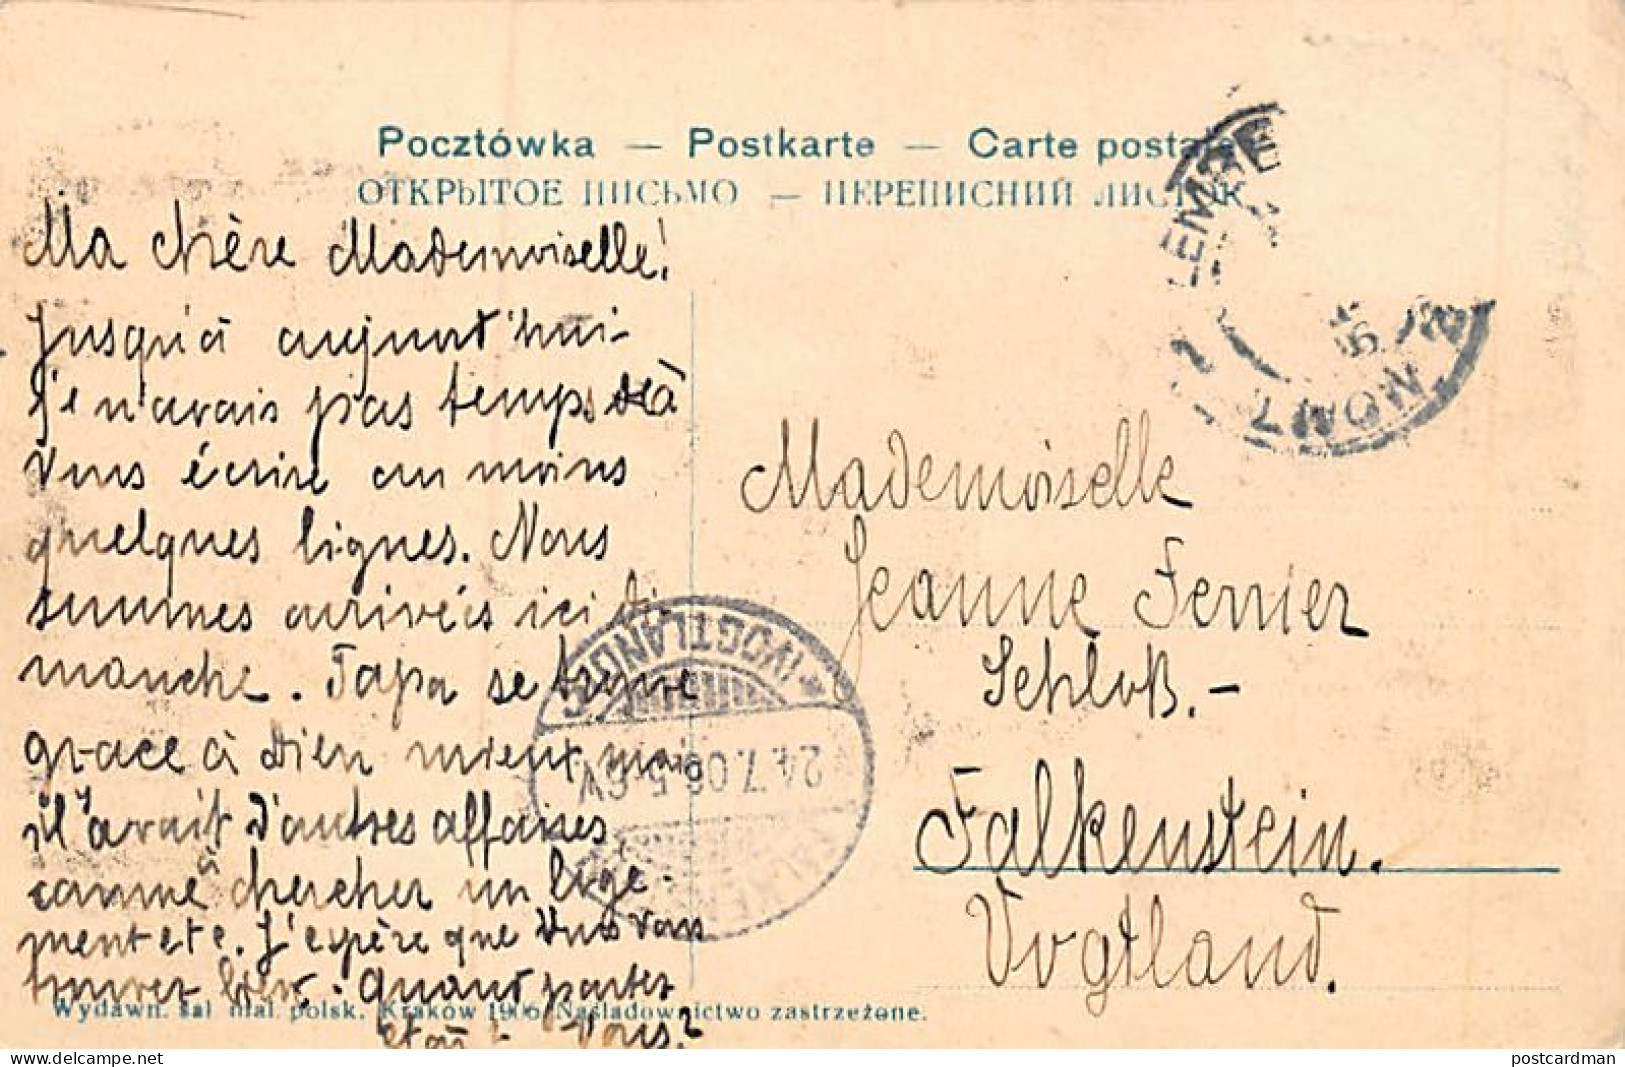 Pocztówka — Postkarte — Carte postale
ОТКРЫТОЕ ПИСЬМО — ПЕРЕПИСНИЙ ЛИСТОК
Ma chère Mademoiselle!
Jusqu'à aujourd'hui
je n'avais pas temps à
Vous écrire au moins
quelques lignes. Nous
sommes arrivés ici di-
manche. Papa se trouve
grace à Dieu mieux, mai
il y avait d'autres affaires
comme chercher un loge-
ment etc. J'espère que Vous Vous
trouvez bien. Quand partez
Vous?
Mademoiselle
Jeanne Ferrier
Schloß.-
Falkenstein.
Vogtland.
LEMBE
LWOW
(VOGTLAND)
24.7.06.5-6V.
FALKEN
Wydawn. sal mal. polsk. Kraków 1906 Naśladownictwo zastrzeżone.
postcardman